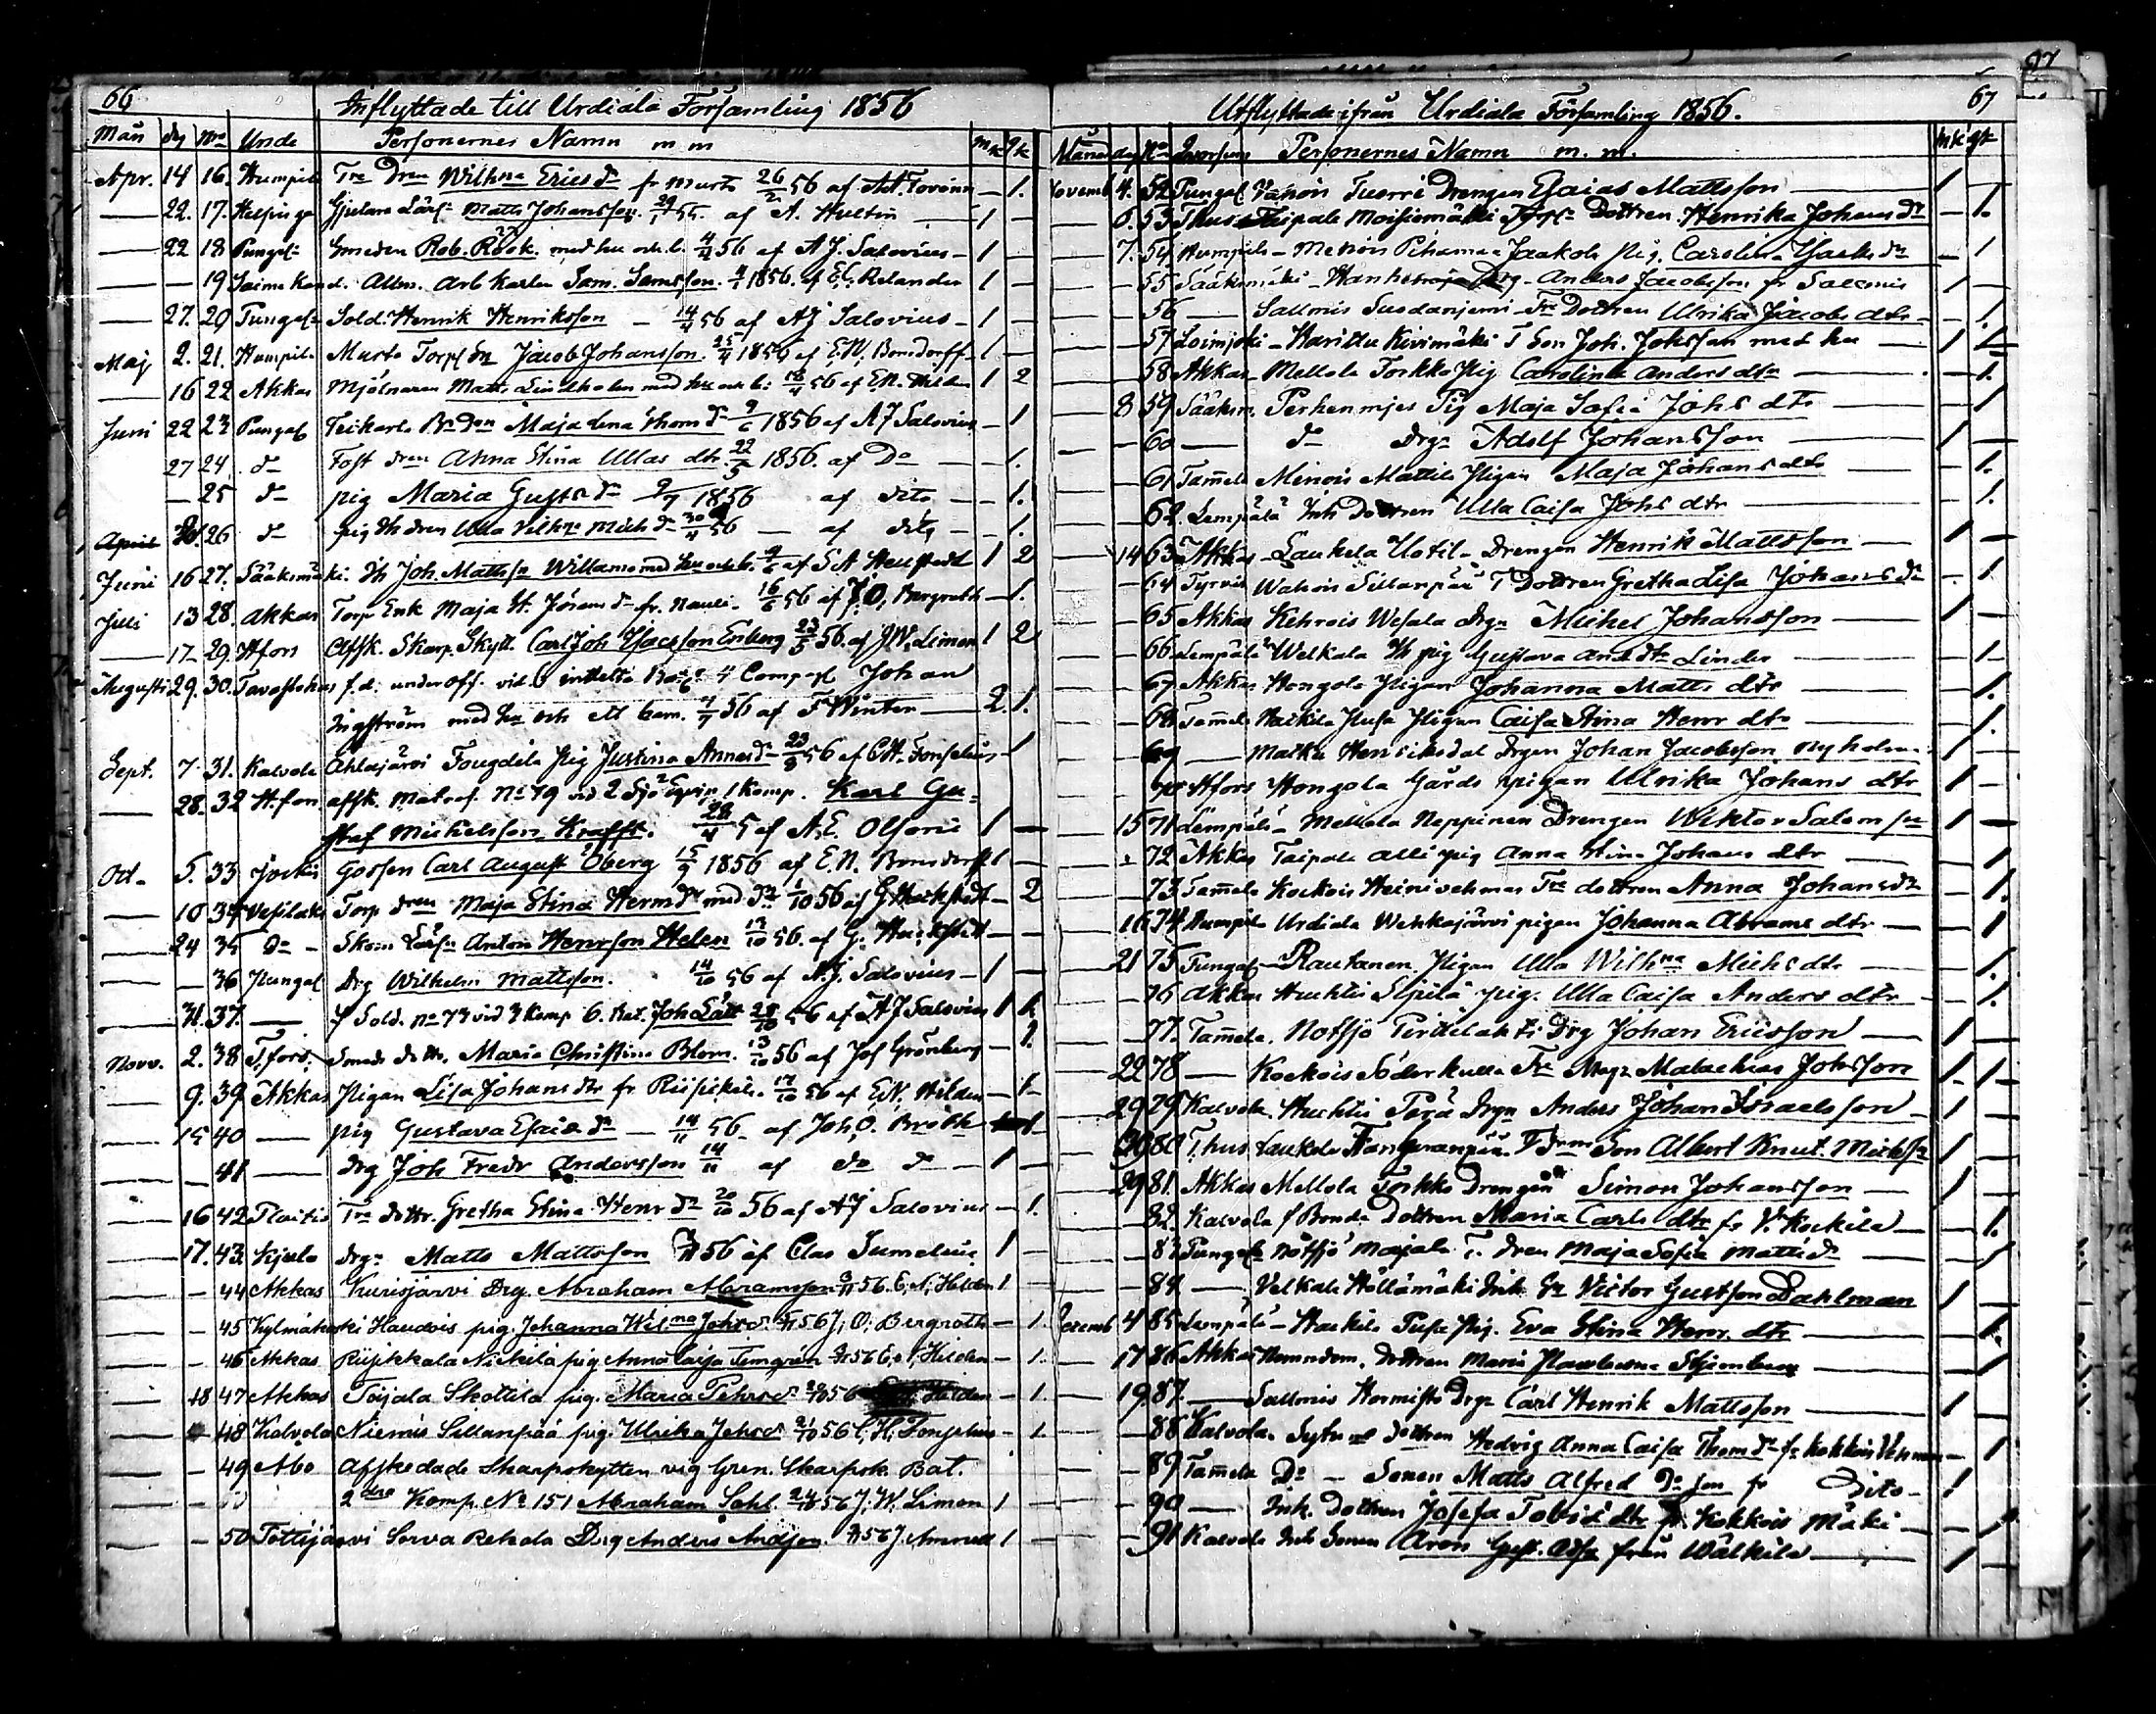 66
Inflyttade till Urdiala Församling 1856
Mån dag No Unde Personernes Namn m m mk qk
Apr. 14 16. Humpila Tre Dren Wilhna Erics dr fr Murto 26/2 56 af — 1.
— 22. 17. Helsinge Matts Johansson. af A. Hultin — 1 —
— 22 18 Pungal Smeden Rob. Röök. med hu och b. 4/4 56 af A J. Salovius — 1
— — 19 Saima Kanal. Allm. Arb karlen Sam. Samsson. 4/1 1856. af E. C. Relander 1 —
— 27. 20 Pungal Sold. Henrik Henriksson — 14/4 56 af A J Salovius — 1
Maj 2. 21. Humpila Murto Torp Son Jacob Johansson. 25/4 1856 af E. N. Bonsdorff — 1 —
— 16 22 Akkas Mjölnaren Matts Lindholm med hu och b: 18/4 56 af E. N. Hilden 1 2
Juni 22 23 Pungal Maja Lena Thoms dr 9/6 1856 af A J Salovius — 1
27 24. do Anna Stina Ullas dtr. 22/5 1856. af Do — 1.
— 25 do pig Maria Gusts dr 1856 af dito — 1.
26 do Ulla Vilhna Michs dr 30/4 56 — af dito — 1.
Juni 16 27. Sääksmäki. Ih Joh. Mattsson Willamo med hu och b. af 1 2
Juli 13 28. Akkas Torp Enk Maja fr. Nauli. 16/6 56 af J. O. Bergroth — 1.
— 17 29. Hfors Affsk. Skarp. Skytt. Carl Joh Isacsson Enberg 23/5 56. af J W. Limon 1 2
Augusti 29. 30. Tavastehus f. d. under off. vid 6 indelta Bat. 4 Compagi Johan
Ingström med hu och ett barn. 4/7 56 af F Winter — 2. 1.
Sept. 7. 31. Kalvola Ahlajärvi Fougdila Pig Justina Annas dr 23/8 56 af C H. Fonselius — 1
— 28. 32 H.fors affsk. Matros. No 79 vid 2 Sjö Eqvip. 1 Komp. Karl Gu=
staf Michelsson Krafft. af A. E. Olsoni 1 —
Oct. 5. 33 Jockis Gossen Carl August Öberg 15/9 1856 af E. N. Bonsdorff 1 —
— 10 34 Vesilaks Torp dren Maja Stina Herm dr med dr. 1/10 56 af G. — 2
— 24 35 Do — Anton Henrsson Helen 13/10 56. af G. —
— 36 Pungal Drg Wilhelm Mattsson. 14/10 56 af A. J. Salovius — 1 —
— 31. 37. — f Sold. No 73 vid 3 Komp 6. Bat. Joh Lätt 28/10 56 af A J Salovius 1 1.
Novv. 2. 38 T.fors. Smeds dottr. Maria Christina Blom. 13/10 56 af Jos Grönberg — 1.
— 9. 39 Akkas Pigan Lisa Johans dtr fr Riisikkala. 17/10 56 af E N. Hilden — 1 —
— 15 40 — pig Gustava Esais dr — 14/11 56 — af Joh. O. Broth
— 41 — drg Joh Fredr Andersson 14/11 af do do — 1 —
— 16 42 Ploitis Tre dottr. Gretha Stina Henr dr 20/10 56 af A J Salovius — 1.
— 17. 43 Kjulo drgn Matts Mattsson 56 af Clas Sumelius 1 —
— 44 Akkas Kurisjärvi Drg. Abraham Abramsson 56. E. N. Hilden 1 —
— 45 Kylmäkoski Haudois pig. Johanna Wilma Johs dr 56 J. O. Bergroth — 1.
— 46 Akkas Riisikkala Nickila pig Anna Caisa Temgrén 56 E. N. Hilden — 1.
— 18 47 Akkas Toijala Skottila pig. Maria Pehrs dr 56 Hilden — 1.
— 48 Kalvola Niemis Sillanpää pig. Ulrika Johs dr 21/10 56 C. H. Fonselius — 1.
— 49 Åbo Afskedade Skarpskytten vid Gren. Skarpsk. Bat.
2dra Komp. No 151 Abraham Sahl. 24/10 56 J. W. Limon 1 —
— 50 Tottijärvi Sorva Rekola Drg Anders Andsson 56 J. 1 —
67
Utflyttade ifrån Urdiala Församling 1856.
Månad dag No Personernes Namn m. m. mk qk
Novemb 4. 52 Pungal Vahois Tuorri Drengen Esaias Mattsson — 1 —
— 6. 53 T.hus Taipale Moisiomäki Torp Dottren Henrika Johans dr — 1.
— 7. 54 Humpila — Menois Pihamaa Jaakola Pig. Carolina Isacks dr — 1
— 55 Sääksmäki — Drg Anders Jacobsson fr Salmis 1 —
— 56 — Salmis Susdanjemi Tre Dottren Ulrika Jacobs dtr — 1.
— 57 Loimjoki — Haridu Kivimäki T Son Joh. Johsson med hu — 1 1
— 58 Akkas — Mellola Torkko Pig Carolina Anders dtr — 1.
— 8 59 Sääksm. Perhenmies Pig Maja Sofia Johs dtr — 1
— 60 — do Drgn Adolf Johansson — 1 —
— 61 Tammela Menois Mattila Pigan Maja Johans dtr — 1.
— 62. Lempälä Inh Dottren Ulla Caisa Johs dtr — 1.
— 14 63 Akkas Laukela Uotila Drengen Henrik Mattsson — 1 —
— 64 Tyrvis Wahois Sillanpää T Dottren Gretha Lisa Johans dr — 1
— 65 Akkas Kehrois Wesala drgn Michel Johansson — 1 —
— 66 Lempälä Welkala Ih pig Gustava And dtr Linder — 1
— 67 Akkas Hongola Pigan Johanna Matts dtr — 1.
— 68 Tammela Haikila Pusa Pigan Caisa Stina Henr dtr — 1.
— 69 — Matku Henriksdal Drgen Johan Jacobsson Nyholm 1 —
— 70 Hfors Hongola Gårds pigan Ulrika Johans dtr — 1
— 15 71 Lempälä — Mellola Neppinen Drengen Wiktor Salomsson 1 —
— 72 Akkas Taipale Alli pig Anna Stina Johans dtr — 1
— 73 Tammela Kockois Heinivehmas Tre dottren Anna Johans dr — 1.
— 16 74 Humpila Urdiala Wehkajärvi pigan Johanna Abrams dtr — 1
— 21 75 Pungal — Rautanen Pigan Ulla Wilhna Michs dtr — 1.
— 76 Akkas Huhtis Seppilä pig. Ulla Caisa Anders dtr — 1.
— 77. Tammela. Notsjö Perttilakti Drg Johan Ericsson — 1 —
— 22 78 — Kockois Söderkulla Malachias Johsson — 1 —
— 29 79 Kalvola. Huhtis Perä Drgn Anders Johan Israelsson — 1 —
— 80 T.hus Laukela Tangeranpää Son Albert Knut. Michss 1 —
— 29 81. Akkas Mellola Torkko Drengen Simon Johansson — 1 —
— 82. Kalvola f Bonde Dottren Maria Carls dtr fr V. Kockila — 1.
— 83 Pungal Notsjö Majala T. dren Maja Sofia Matts dr — 1
— 84 — Velkala Höllämäki Inh Victor Gustsson Dahlman 1 —
Decemb 4 85 Lempälä — Haikila Pusa Pig. Eva Stina Henr. dtr — 1.
— 17 86 Akkas dottren Maria — 1
— 19. 87 — Salmis Hormisto Drgn Carl Henrik Mattsson — 1 —
— 88 Kalvola. dottren Hedvig Anna Caisa Thom dr fr Kokkois — 1
— 89 Tammela Do — Sonen Matts Alfred Do son fr Dito — 1
— 90 — Inh. Dottren Josefa Tobias dtr fr. Kokkois Mäki — 1.
— 91 Kalvola Inh Sonen Aron Gust. från Wälkilä — 1 —